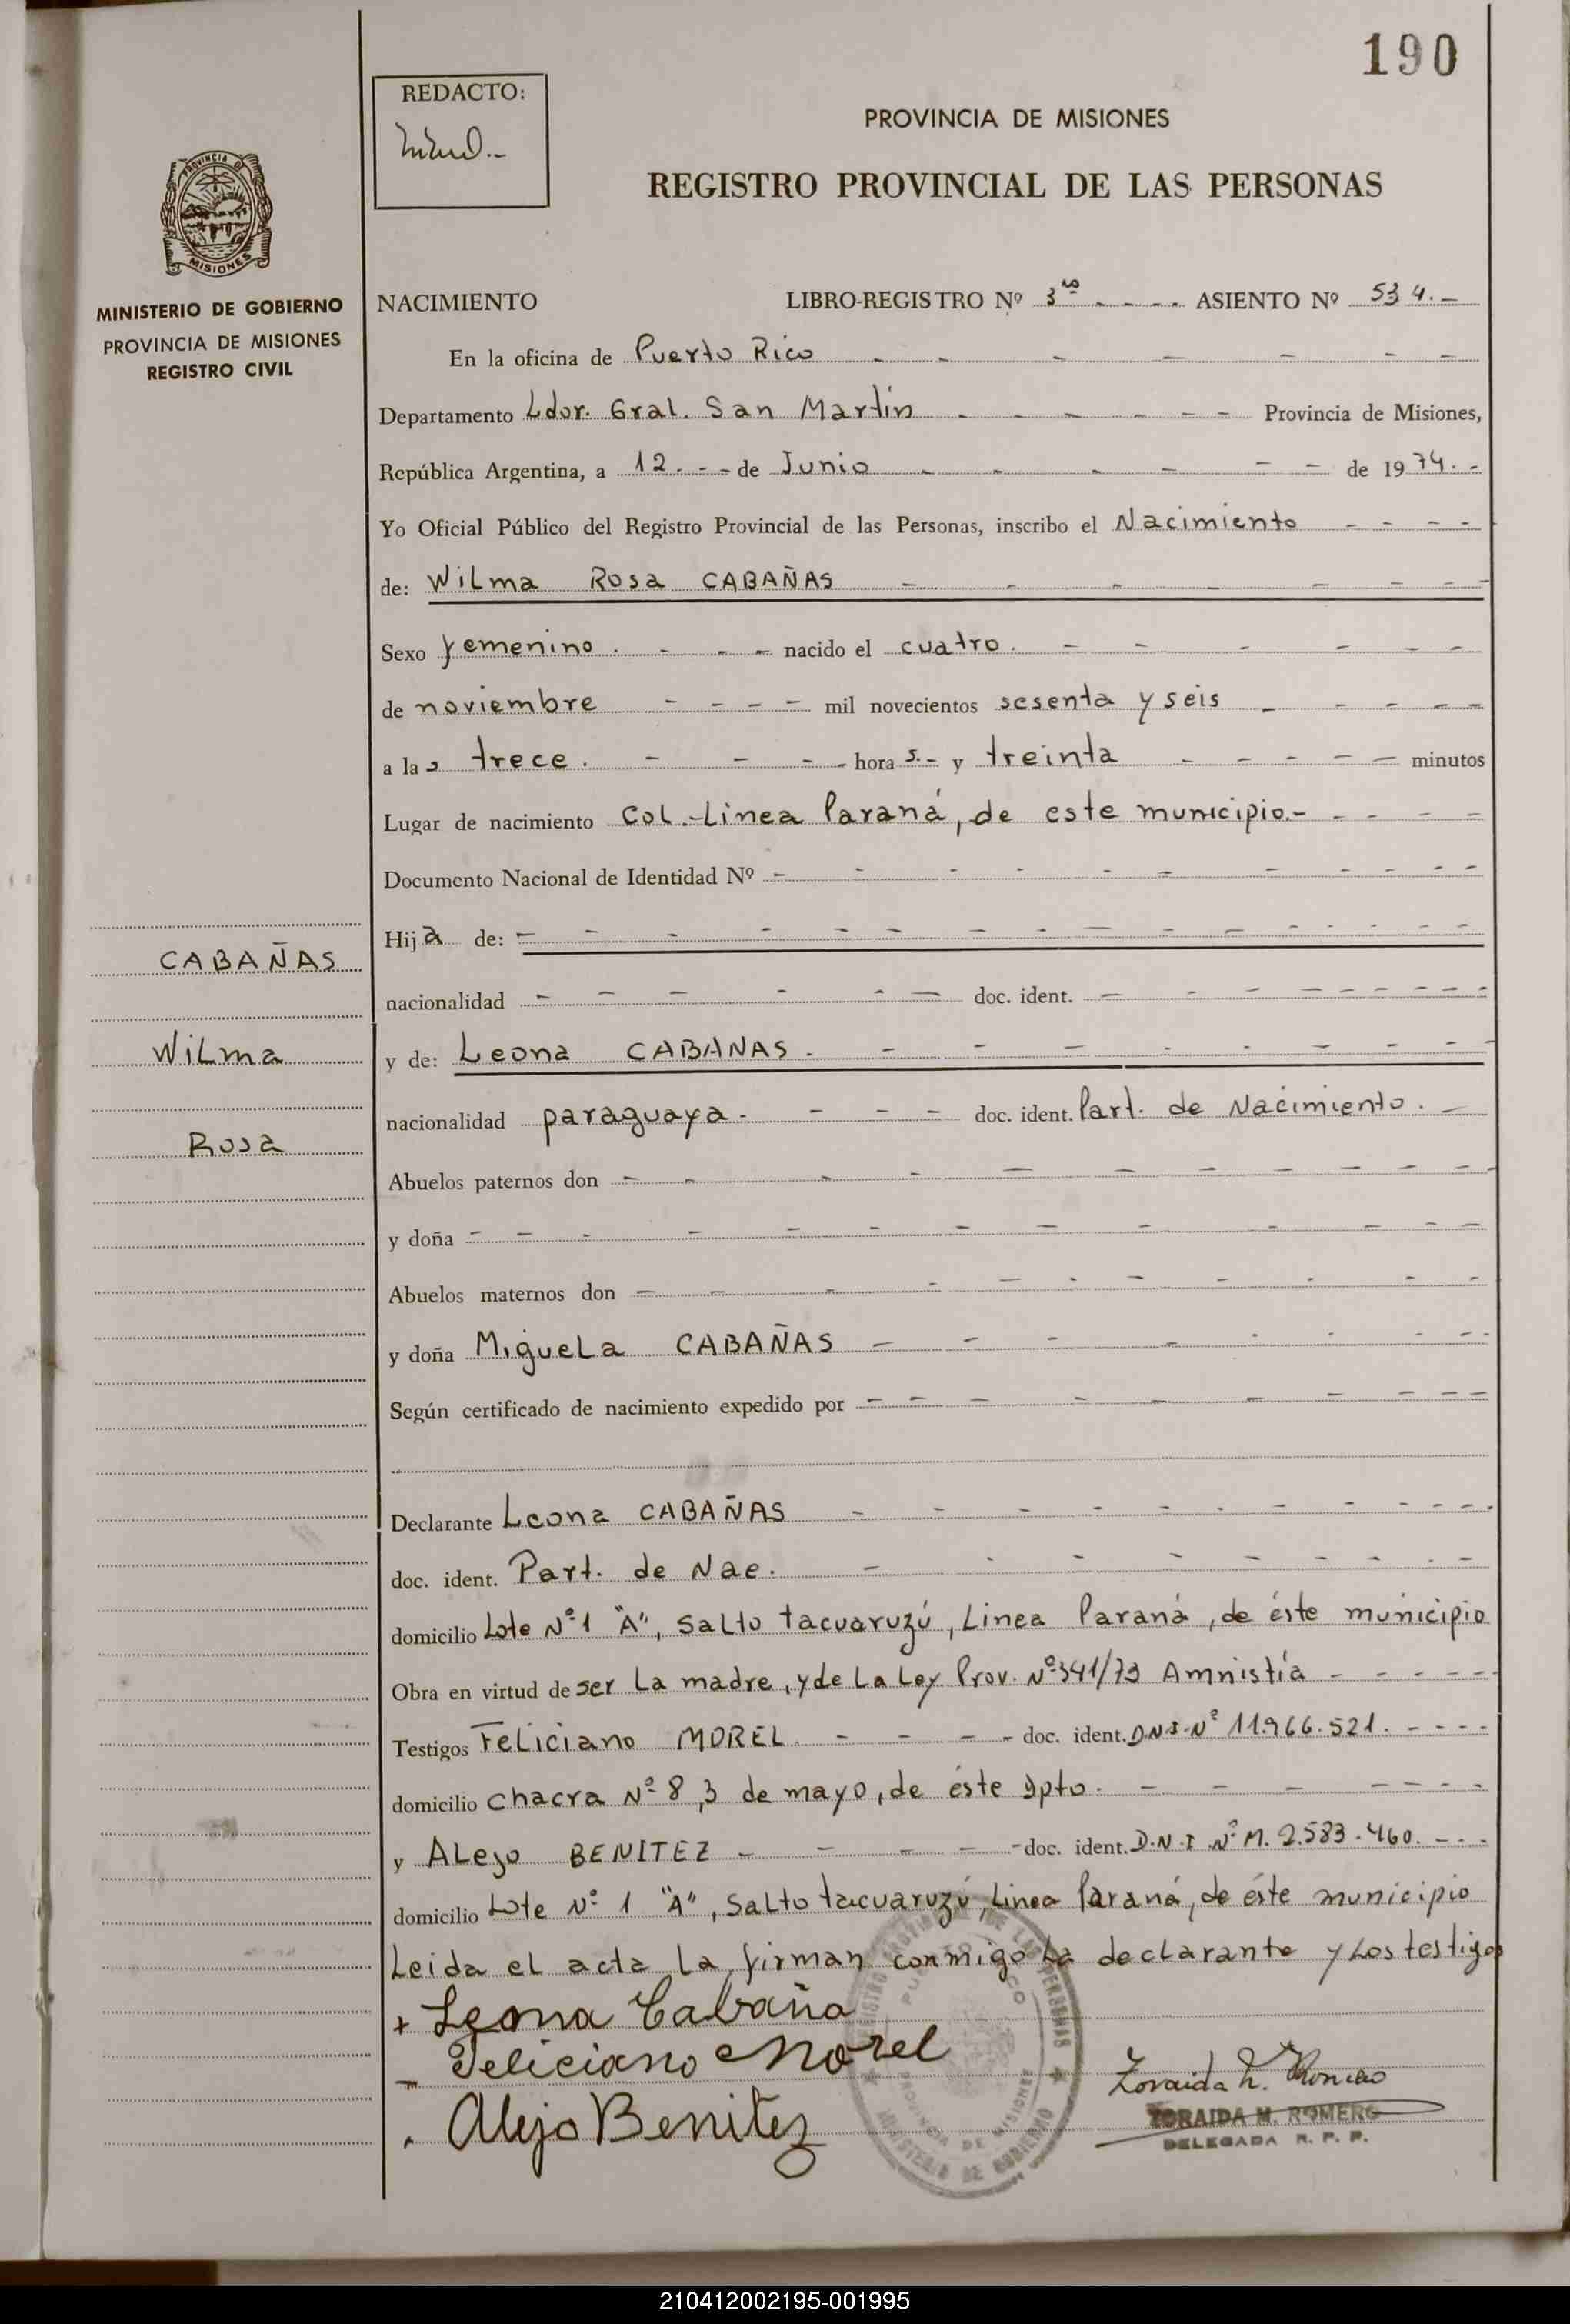 190
REDACTO:
PROVINCIA DE MISIONES
REGISTRO PROVINCIAL DE LAS PERSONAS
PROVINCIA DE
MISIONES
MINISTERIO DE GOBIERNO
PROVINCIA DE MISIONES
REGISTRO CIVIL
NACIMIENTO LIBRO-REGISTRO Nº 3º - - - - ASIENTO Nº 534.-
En la oficina de Puerto Rico - - - - - - -
Departamento Ldor. Gral. San Martín - - - - - - Provincia de Misiones,
República Argentina, a 12. - - de Junio - - - - - - de 1974. -
Yo Oficial Público del Registro Provincial de las Personas, inscribo el Nacimiento - - - -
de: Wilma Rosa CABAÑAS - - - - - - - -
Sexo femenino. - - - nacido el cuatro. - - - - - -
de noviembre - - - - mil novecientos sesenta y seis - - - - -
a las trece. - - - - hora s.- y treinta - - - - - minutos
Lugar de nacimiento Col.-Linea Paraná, de este municipio.- - - - -
Documento Nacional de Identidad Nº - - - - - - - - - - -
Hija de: - - - - - - - - - - - - - - -
nacionalidad - - - - - - doc. ident. - - - - - - - -
y de: Leona CABANAS. - - - - - - - -
nacionalidad paraguaya. - - - - doc. ident. Part. de Nacimiento. -
Abuelos paternos don - - - - - - - - - - -
y doña - - - - - - - - - - - - -
Abuelos maternos don - - - - - - - - - -
y doña Miguela CABAÑAS - - - - - - - -
Según certificado de nacimiento expedido por - - - - - - - - - -
Declarante Leona CABAÑAS - - - - - - - - - - -
doc. ident. Part. de Nac. - - - - - - - - -
domicilio Lote Nº 1 "A", Salto tacuaruzú, Linea Paraná, de éste municipio
Obra en virtud de ser La madre, y de La Ley Prov. Nº 341/73 Amnistía - - - - -
Testigos Feliciano MOREL. - - - - doc. ident. D.N.I. Nº 11.966.521. - - - -
domicilio chacra Nº 8, 3 de mayo, de éste Dpto. - - - - - - -
y Alejo BENITEZ - - - - - doc. ident. D.N.I. Nº M. 2.583.460. - - -
domicilio Lote Nº 1 "A", Salto tacuaruzú, Linea Paraná, de éste municipio
Leida el acta la firman conmigo La declarante y Los testigos
+ Leona Cabaña
Feliciano Morel
Alejo Benitez
Zoraida M. Romero
ZORAIDA M. ROMERO
DELEGADA R. P. P.
REGISTRO PROVINCIAL DE LAS PERSONAS
PUERTO RICO
PROVINCIA DE MISIONES
MINISTERIO DE GOBIERNO
CABAÑAS
Wilma
Rosa
210412002195-001995